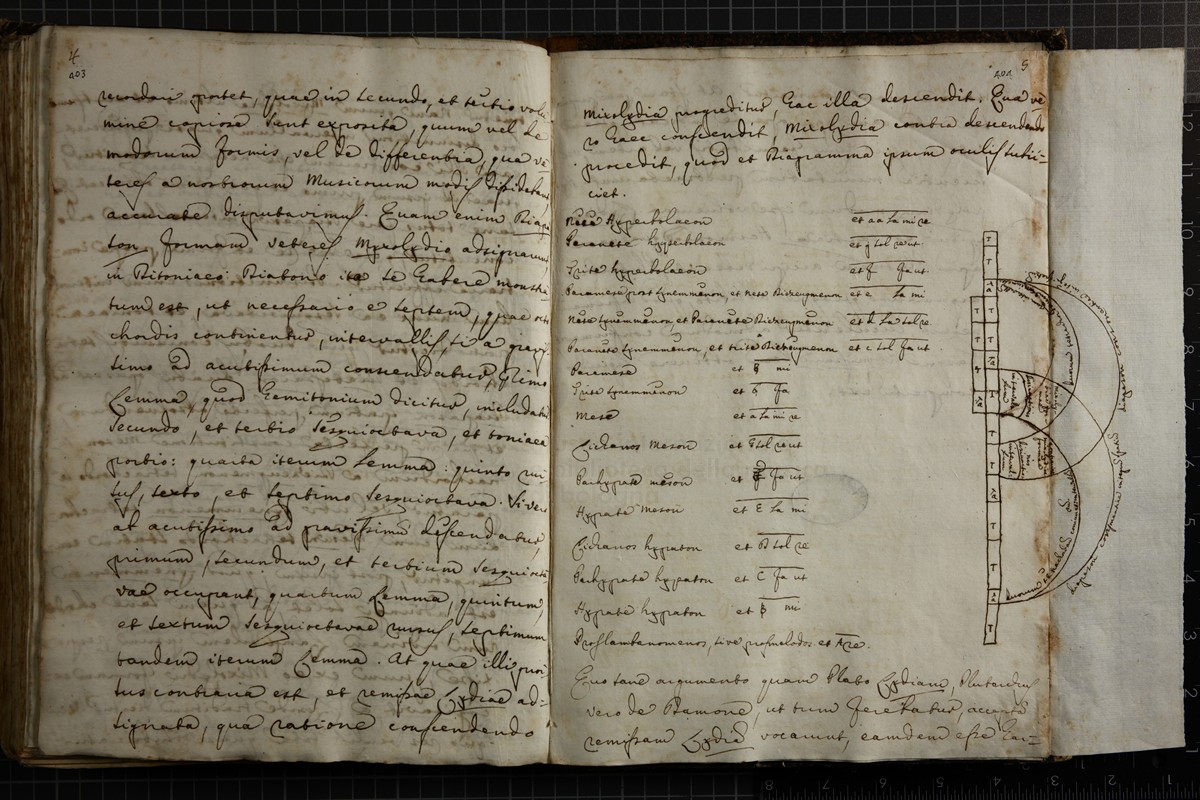 4
403
recordari oportet, quae in secundo, et tertio volu
mine copiose sunt exposita, quum vel de
modorum formis, vel de differentia, qua ve
teres a nostrorum Musicorum modis dissidebant
accurate disputavimus. Quam enim Diapa
son formam veteres Myxolydio adsignarunt,
in Ditoniaeo Diatonio ita se habere monstra
tum est, ut necessario e septem, quae octo
chordis continentur, intervallis, si a gravis
simo ad acutissimum conscendatur, primo
Lemma, quod hemitonium dicitur, includatur
secundo, et tertio sesquioctava, et toniaea
portio: quarta iterum Lemma: quinto rur
sus, sexto, et septimo sesquioctava. Si vero
ab acutissimo ad gravissimum descendatur,
primum, secundum, et tertium sesquiocta
vae occupant, quartum Lemma, quintum,
et sextum sesquioctavae rursus, septimum
tandem iterum Lemma. At quae illi pror
sus contraria est, et remissae Lydiae ad-
signata, qua ratione conscendendo
5
404
Mixolydia progreditur, hac illa descendit. Qua ve
ro haec conscendit, Mixolydia contra descendendo
procedit, quod et Diagramma ipsum oculis subii-
ciet.
Nete Hyperbolaeon et aa la mi re
Paranete hyperbolaeon et g sol re ut
Trite hyperbolaeon et f fa ut
Paramese post synemmenon, et Nete Diezeugmenon et e la mi
Nete synemmenon, et Paranete Diezeugmenon et d la sol re
Paranete synemmenon, et trite Diezeugmenon et c sol fa ut
Paramese et ♮ mi
Trite synemmenon et b fa
Mese et a la mi re
Lichanos meson et G sol re ut
Parhypate meson et F fa ut
Hypate meson et E la mi
Lichanos hypaton et D sol re
Parhypate hypaton et C fa ut
Hypate hypaton et ♮ mi
Proslambanomenos, sive prosmelodos et A re.
T
T
T
T
T
T
T
T
T
T
T
T
Quo sane argumento quam Plato Lydiam, Plutarchus
vero de Damone, ut tum ferebatur, accepta
remissam Lydiam vocarunt, eamdem esse har-